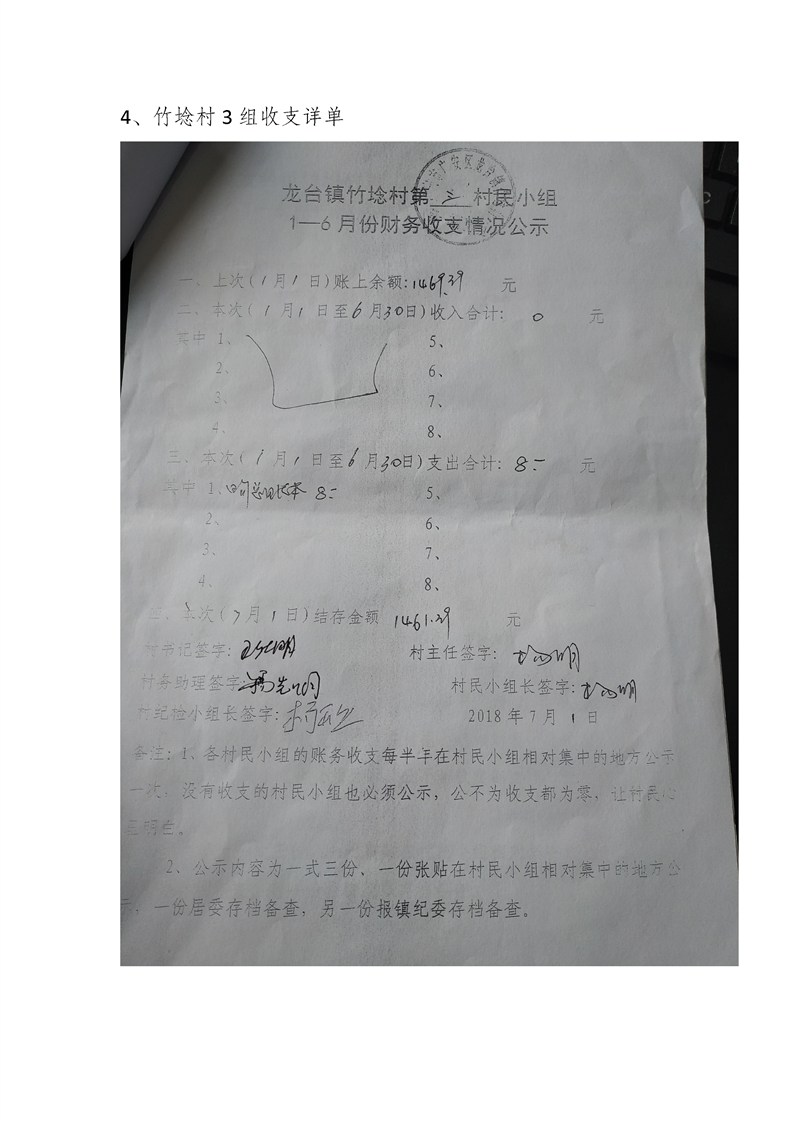 4、竹埝村 3 组收支详单
龙台镇竹埝村第三村民小组
1—6月份财务收支情况公示
一、上次(1月1日)账上余额:1469.39 元
二、本次(1月1日至6月30日)收入合计: 0 元
其中 1、 5、
2、 6、
3、 7、
4、 8、
三、本次(1月1日至6月30日)支出合计: 8.- 元
其中 1、 8.- 5、
2、 6、
3、 7、
4、 8、
四、本次(7月1日)结存金额 1461.39 元
村书记签字: 村主任签字:
村务助理签字: 村民小组长签字:
村纪检小组长签字: 2018年7月1日
备注:1、各村民小组的账务收支每半年在村民小组相对集中的地方公示
一次,没有收支的村民小组也必须公示,公不为收支都为零,让村民心
里明白。
2、公示内容为一式三份、一份张贴在村民小组相对集中的地方公
示,一份居委存档备查,另一份报镇纪委存档备查。